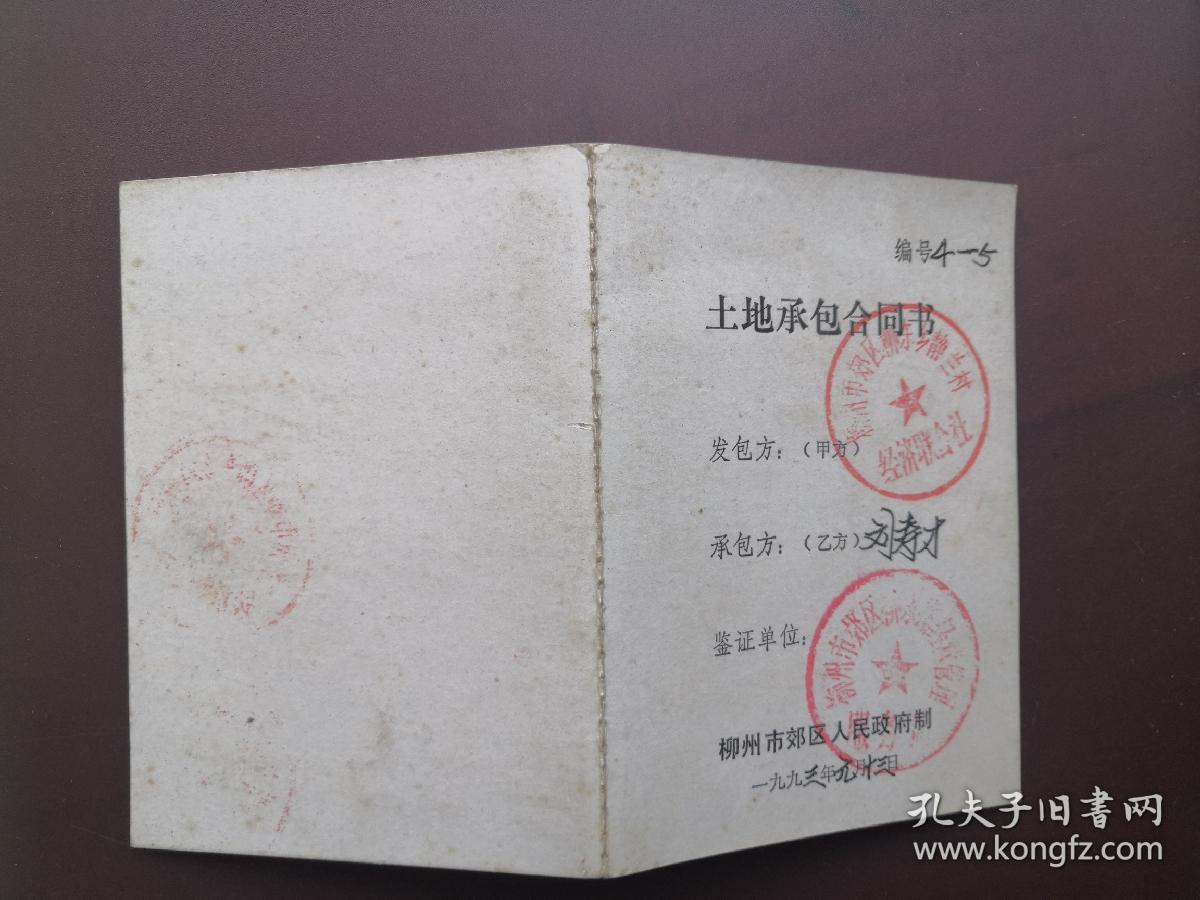 编号4—5
土地承包合同书
柳州市郊区柳东乡静兰村
经济联合社
发包方：（甲方）
承包方：（乙方）刘寿才
鉴证单位：
柳州市郊区
柳州市郊区人民政府制
一九九三年九月十三日
孔夫子旧書网
www.kongfz.com